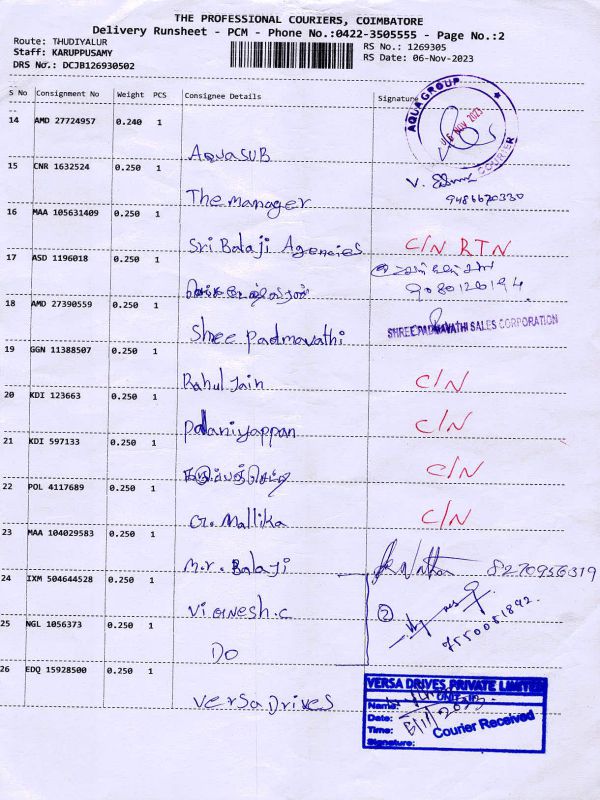 THE PROFESSIONAL COURIERS, COIMBATORE
Delivery Runsheet - PCM - Phone No.:0422-3505555 - Page No.:2
Route: THUDIYALUR
RS No.: 1269305
Staff: KARUPPUSAMY
RS Date: 06-Nov-2023
DRS No.: DCJB126930502
S No Consignment No Weight PCS Consignee Details Signature
14 AMD 27724957 0.240 1
AQUA GROUP
06 NOV 2023
COURIER
AquaSUB
15 CNR 1632524 0.250 1
V.
9486670330
The manager
16 MAA 105631409 0.250 1
Sri Balaji Agencies C/N RTN
17 ASD 1196018 0.250 1
9080126194
18 AMD 27390559 0.250 1
SHREE PADMAVATHI SALES CORPORATION
Shree Padmavathi
19 GGN 11388507 0.250 1
Rahul Jain C/N
20 KDI 123663 0.250 1
Palaniyappan C/N
21 KDI 597133 0.250 1
C/N
22 POL 4117689 0.250 1
Mallika C/N
23 MAA 104029583 0.250 1
M.r. Balaji 8270956319
24 IXM 504644528 0.250 1
Vignesh.c
②
7550051892.
25 NGL 1056373 0.250 1
Do
26 EDQ 15928500 0.250 1
Versa Drives
VERSA DRIVES PRIVATE LIMITED
Name:
Date: 6/11/2023
Time:
Courier Received
Signature: